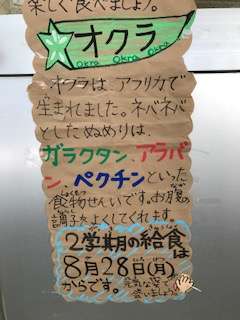 楽しく食べましょう。
オクラ
Okra Okra Okra
オクラは、アフリカで
生まれました。ネバネバ
としたぬめりは、
ガラクタン、アラバ
ン、ペクチンといった
食物せんいです。お腹の
調子をよくしてくれます。
2学期の給食は
8月28日(月)
からです。元気な姿で
会いましょう